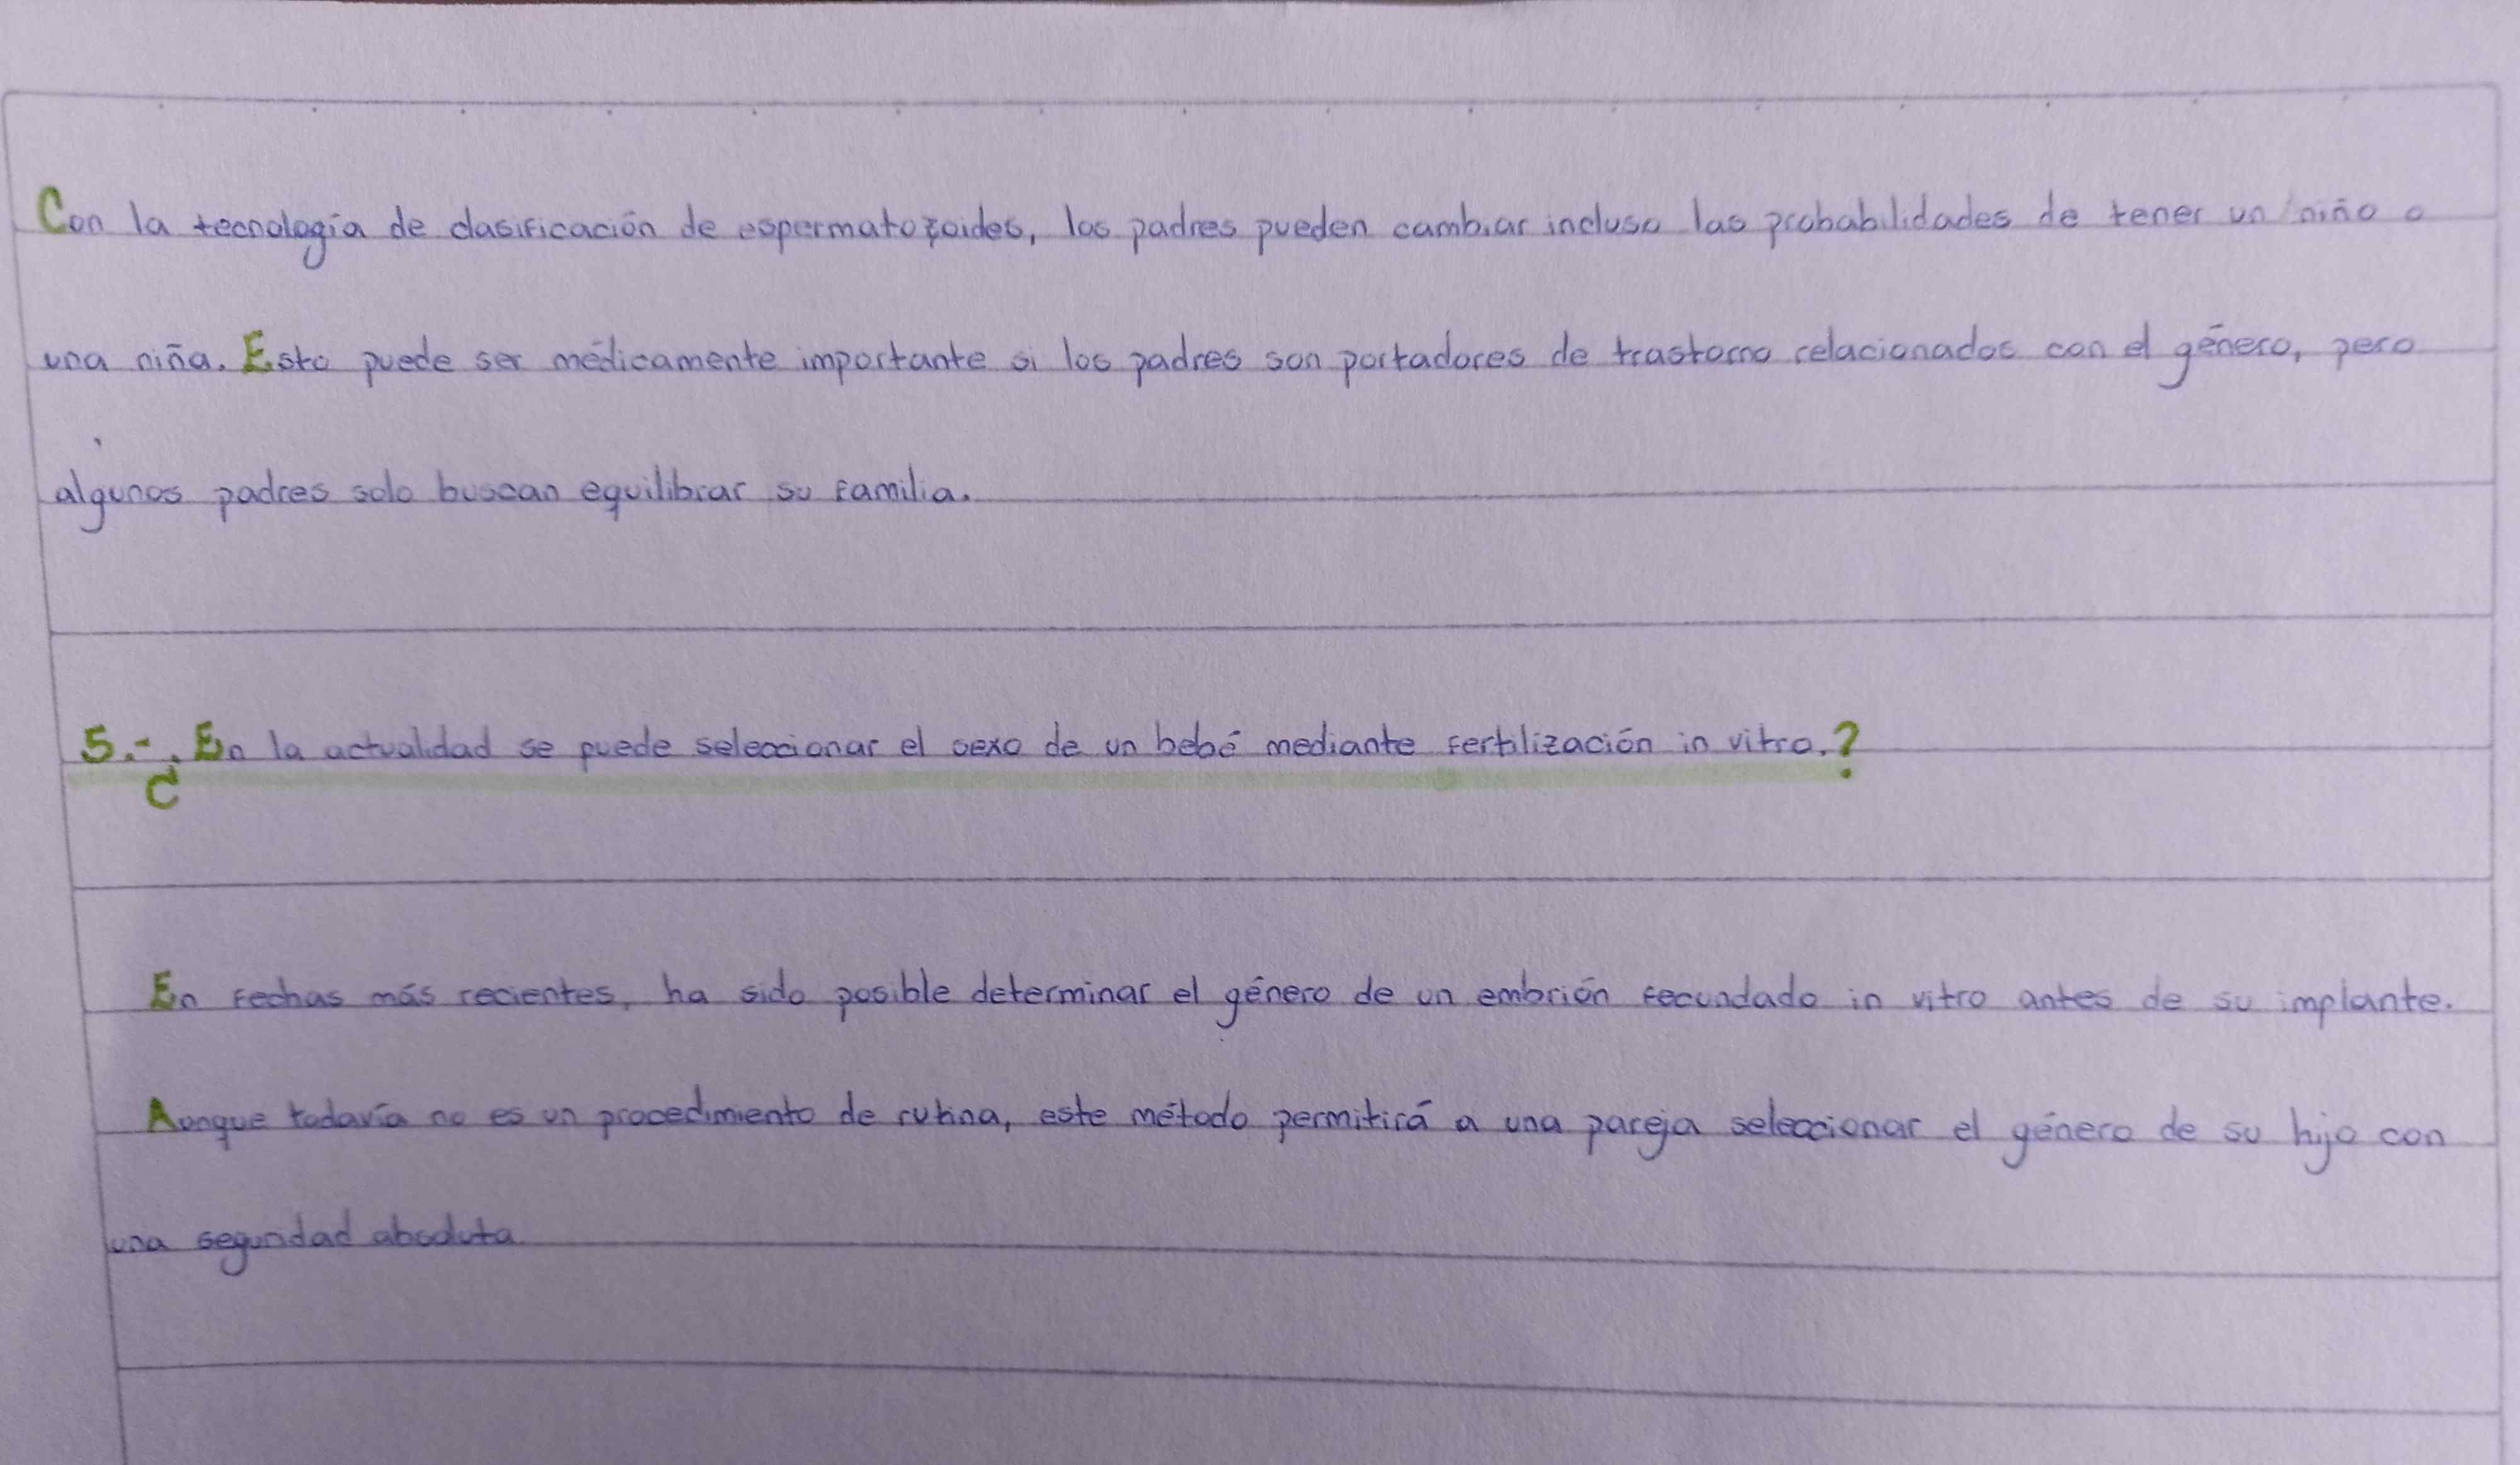 Con la tecnología de clasificación de espermatozoides, los padres pueden cambiar incluso las probabilidades de tener un niño o
una niña. Esto puede ser médicamente importante si los padres son portadores de trastorno relacionados con el género, pero
algunos padres solo buscan equilibrar su familia.
5.- ¿En la actualidad se puede seleccionar el sexo de un bebé mediante fertilización in vitro.?
En fechas más recientes, ha sido posible determinar el género de un embrión fecundado in vitro antes de su implante.
Aunque todavía no es un procedimiento de rutina, este método permitirá a una pareja seleccionar el género de su hijo con
una seguridad absoluta